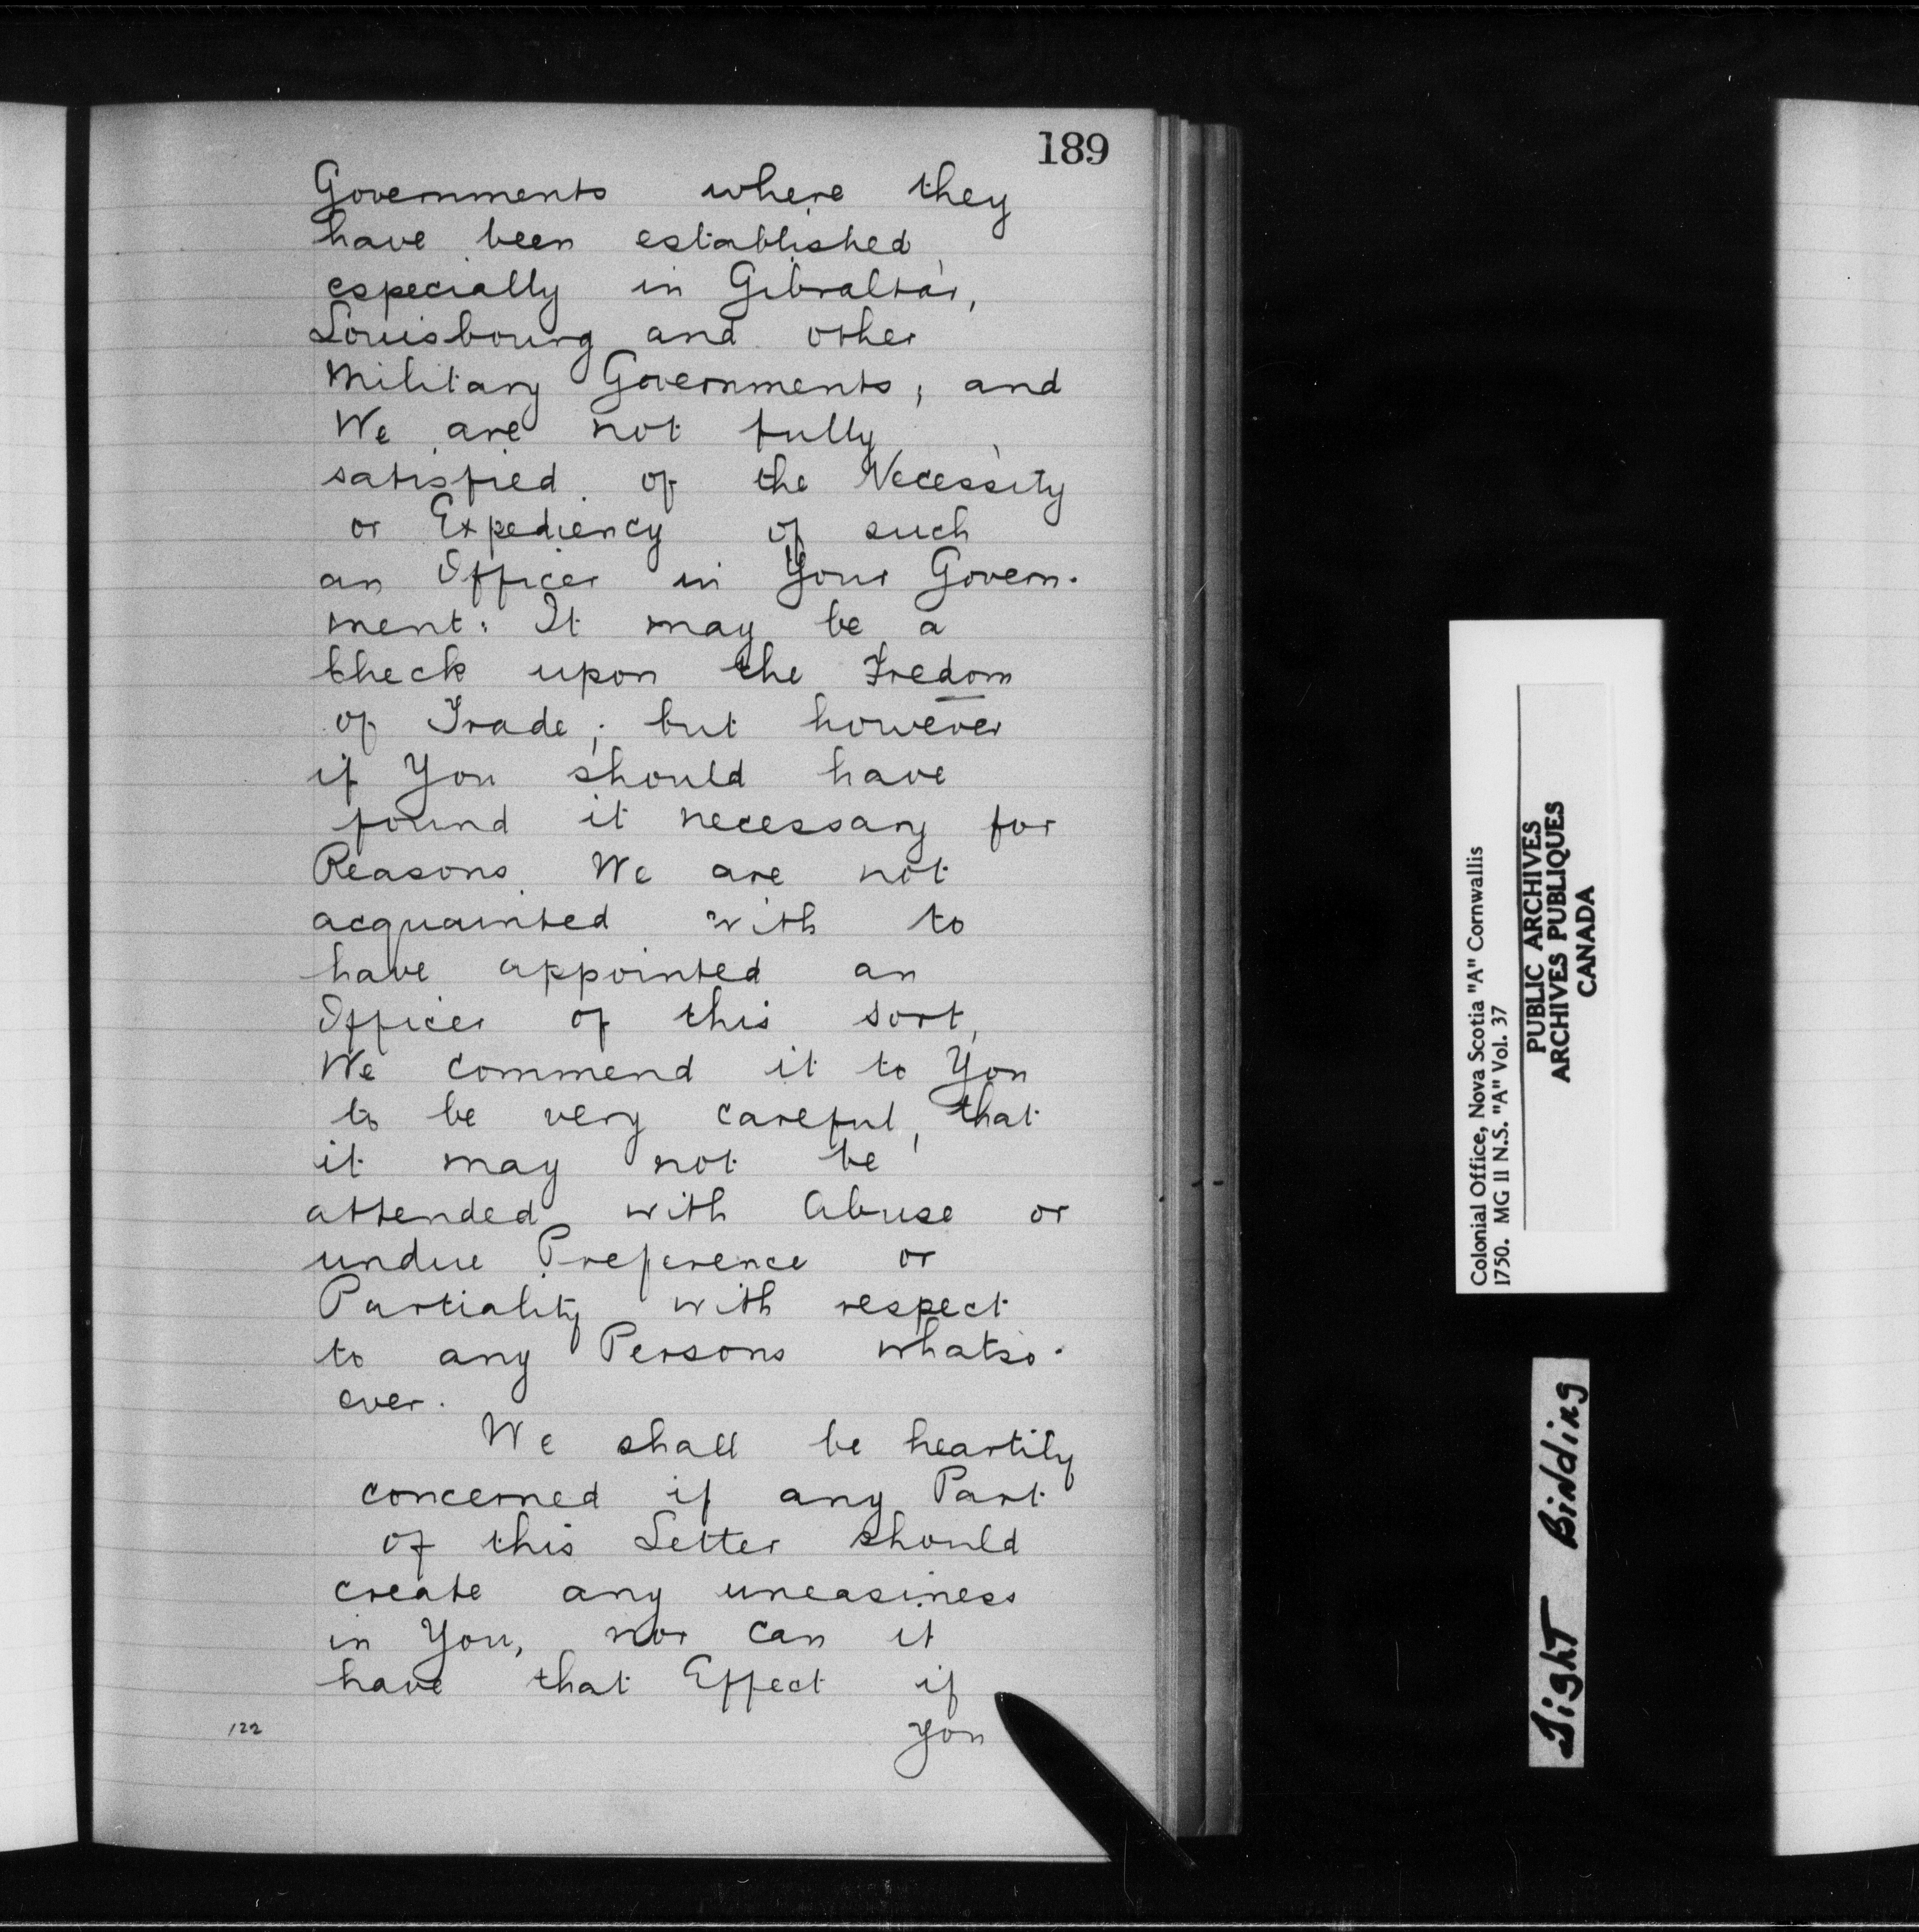 189
Governments where they
have been established
especially in Gibraltar,
Louisbourg and other
Military Governments, and
We are not fully
satisfied of the Necessity
or Expediency of such
an Officer in Your Govern-
ment: It may be a
Check upon the Fredom
of Trade; but however
if You should have
found it necessary for
Reasons We are not
acquainted with to
have appointed an
Officer of this sort,
We commend it to You
to be very careful, that
it may not be
attended with Abuse or
undue Preference or
Partiality with respect
to any Persons whatso-
ever.
We shall be heartily
concerned if any Part
of this Letter should
create any uneasiness
in You, nor can it
have that Effect if
you
122
Colonial Office, Nova Scotia "A" Cornwallis
1750. MG 11 N.S. "A" Vol. 37
PUBLIC ARCHIVES
ARCHIVES PUBLIQUES
CANADA
Tight Binding